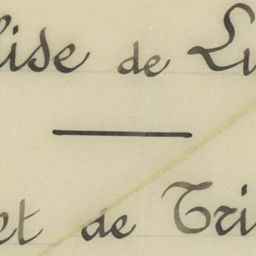 lise de Lu
et de Tri